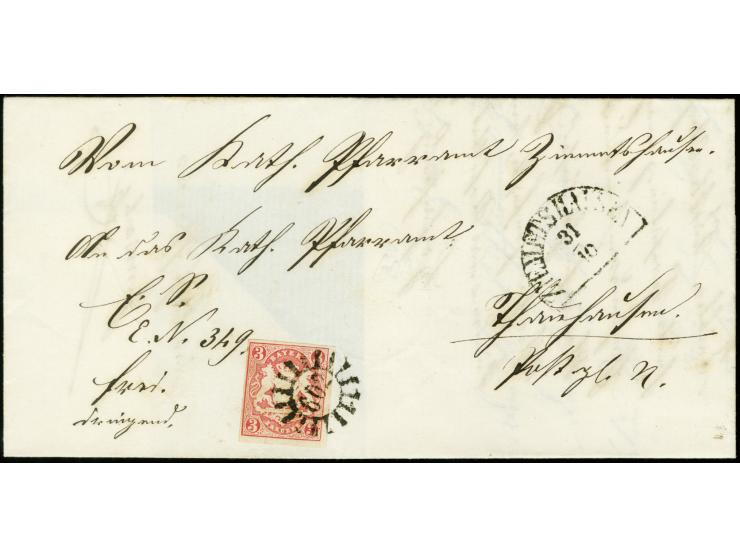 Vom Kath. Pfarramt Ziemetshausen.
ZIEMETSHAUSEN
31
10
An das Kath. Pfarramt
Thannhausen.
E. N. 349.
frei.
dringend.
3
BAYERN
3